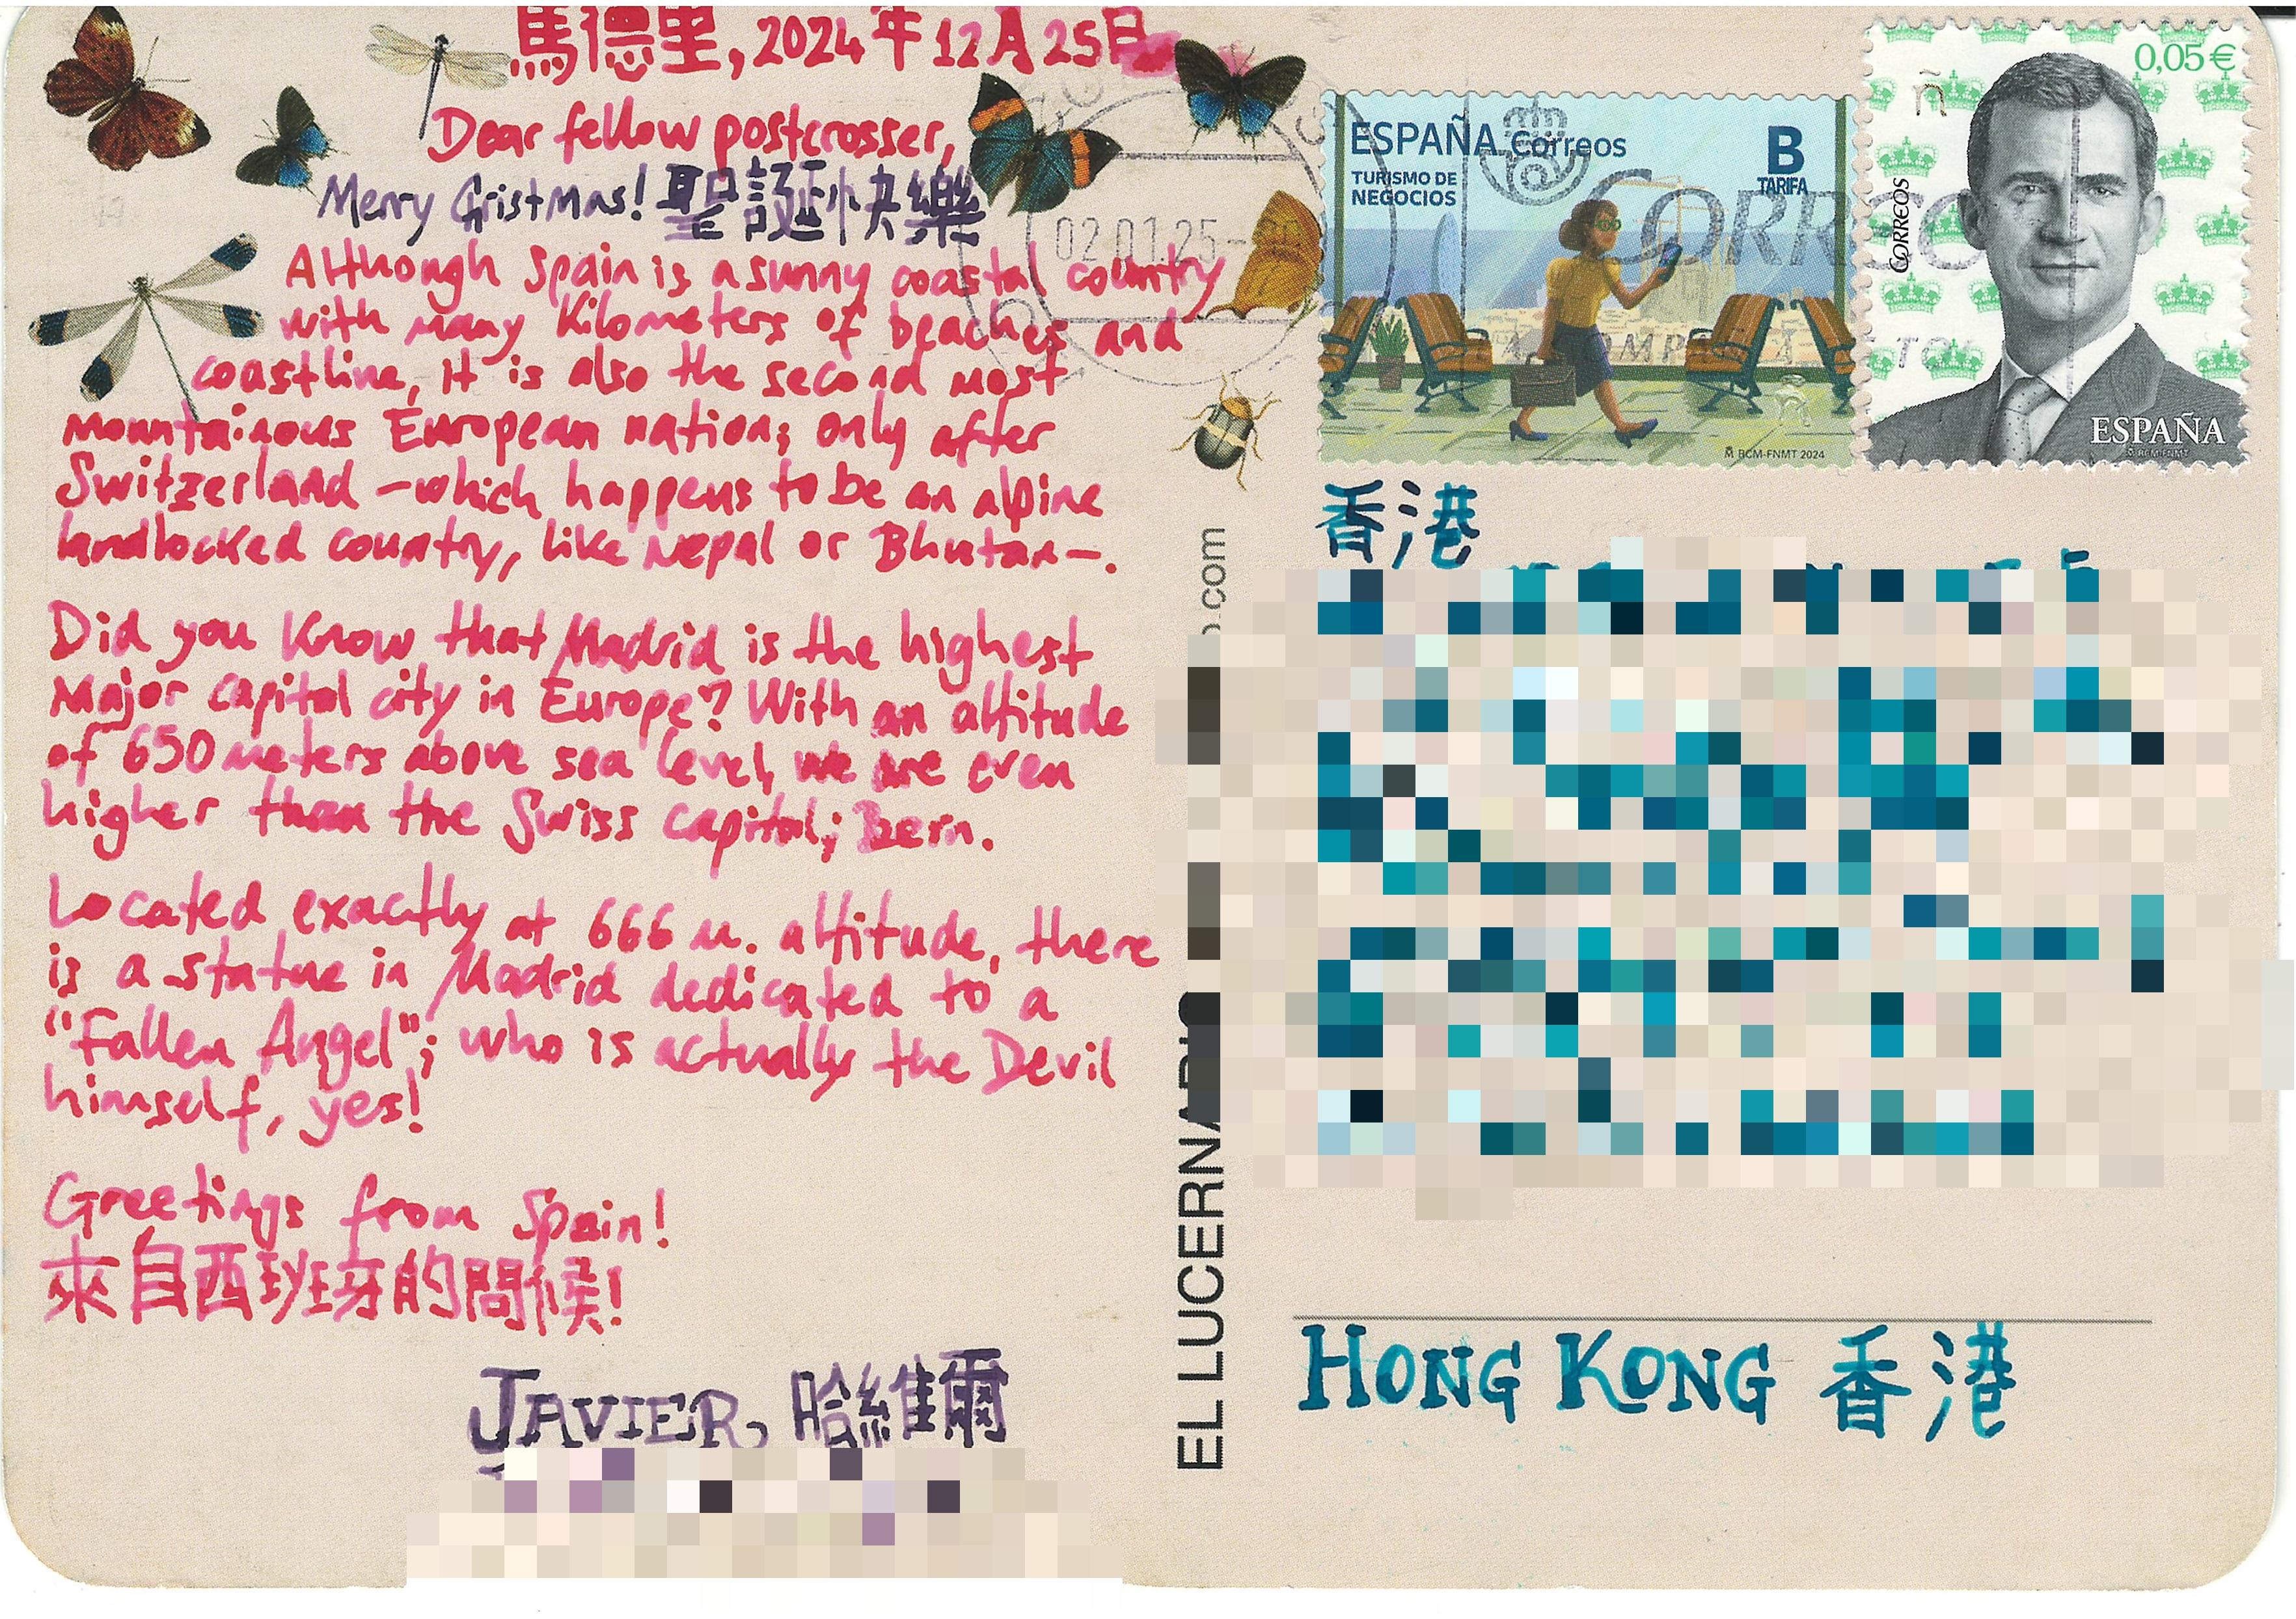 馬德里, 2024年12月25日
Dear fellow postcrosser,
Merry Cristmas! 聖誕快樂
Although Spain is a sunny coastal country
with many Kilometers of beaches and
coastline, it is also the second most
mountainous European nation; only after
Switzerland -which happens to be an alpine
landlocked country, like Nepal or Bhutan-.
Did you know that Madrid is the highest
Major capital city in Europe? With an altitude
of 650 meters above sea level, we are even
higher than the Swiss capital; Bern.
Located exactly at 666 m. altitude, there
is a statue in Madrid dedicated to a
"Fallen Angel"; who is actually the Devil
himself, yes!
Greetings from Spain!
來自西班牙的問候!
JAVIER, 哈維爾
EL LUCERNARIO
.com
02.01.25-
CORREO
ESPAÑA Correos
TURISMO DE
NEGOCIOS
B
TARIFA
BCM-FNMT 2024
0,05 €
CORREOS
ESPAÑA
BCM-FNMT
香港
HONG KONG 香港